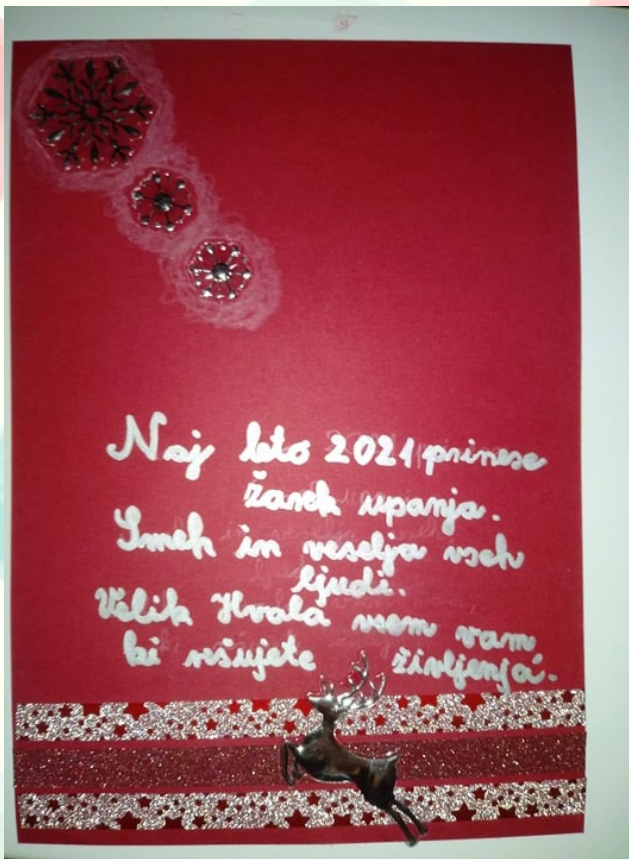 Naj leto 2021 prinese
žarek upanja.
Smeh in veselja vseh
ljudi.
Velik Hvala vsem vam
ki rešujete življenja.